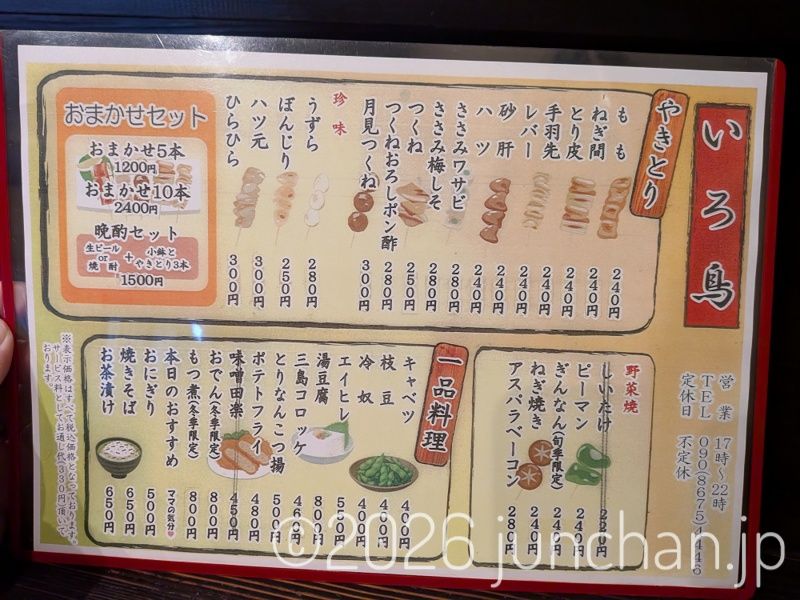 いろ鳥
営業 17時～22時
TEL 090(8675)
定休日 不定休
やきとり
もも 240円
ねぎ間 240円
とり皮 240円
手羽先 240円
レバー 240円
砂肝 240円
ハツ 240円
ささみワサビ 280円
ささみ梅しそ 280円
つくね 250円
つくねおろしポン酢 280円
月見つくね 300円
珍味
うずら 280円
ぼんじり 250円
ハツ元 300円
ひらひら 300円
おまかせセット
おまかせ5本
1200円
おまかせ10本
2400円
晩酌セット
生ビール or 焼酎 + 小鉢とやきとり3本
1500円
野菜焼
しいたけ
ピーマン 240円
ぎんなん(旬季限定) 240円
ねぎ焼き 240円
アスパラベーコン 280円
一品料理
キャベツ 400円
枝豆 400円
冷奴 400円
エイヒレ 550円
湯豆腐 800円
三島コロッケ 460円
とりなんこつ揚 500円
ポテトフライ 480円
味噌田楽 450円
おでん(冬季限定) 800円
もつ煮(冬季限定) 800円
本日のおすすめ ママの気分♥
おにぎり 500円
焼きそば 650円
お茶漬け 650円
※表示価格はすべて税込価格となっております。
サービス料としてお通し代(330円)頂いて
おります。
©2026 junchan.jp